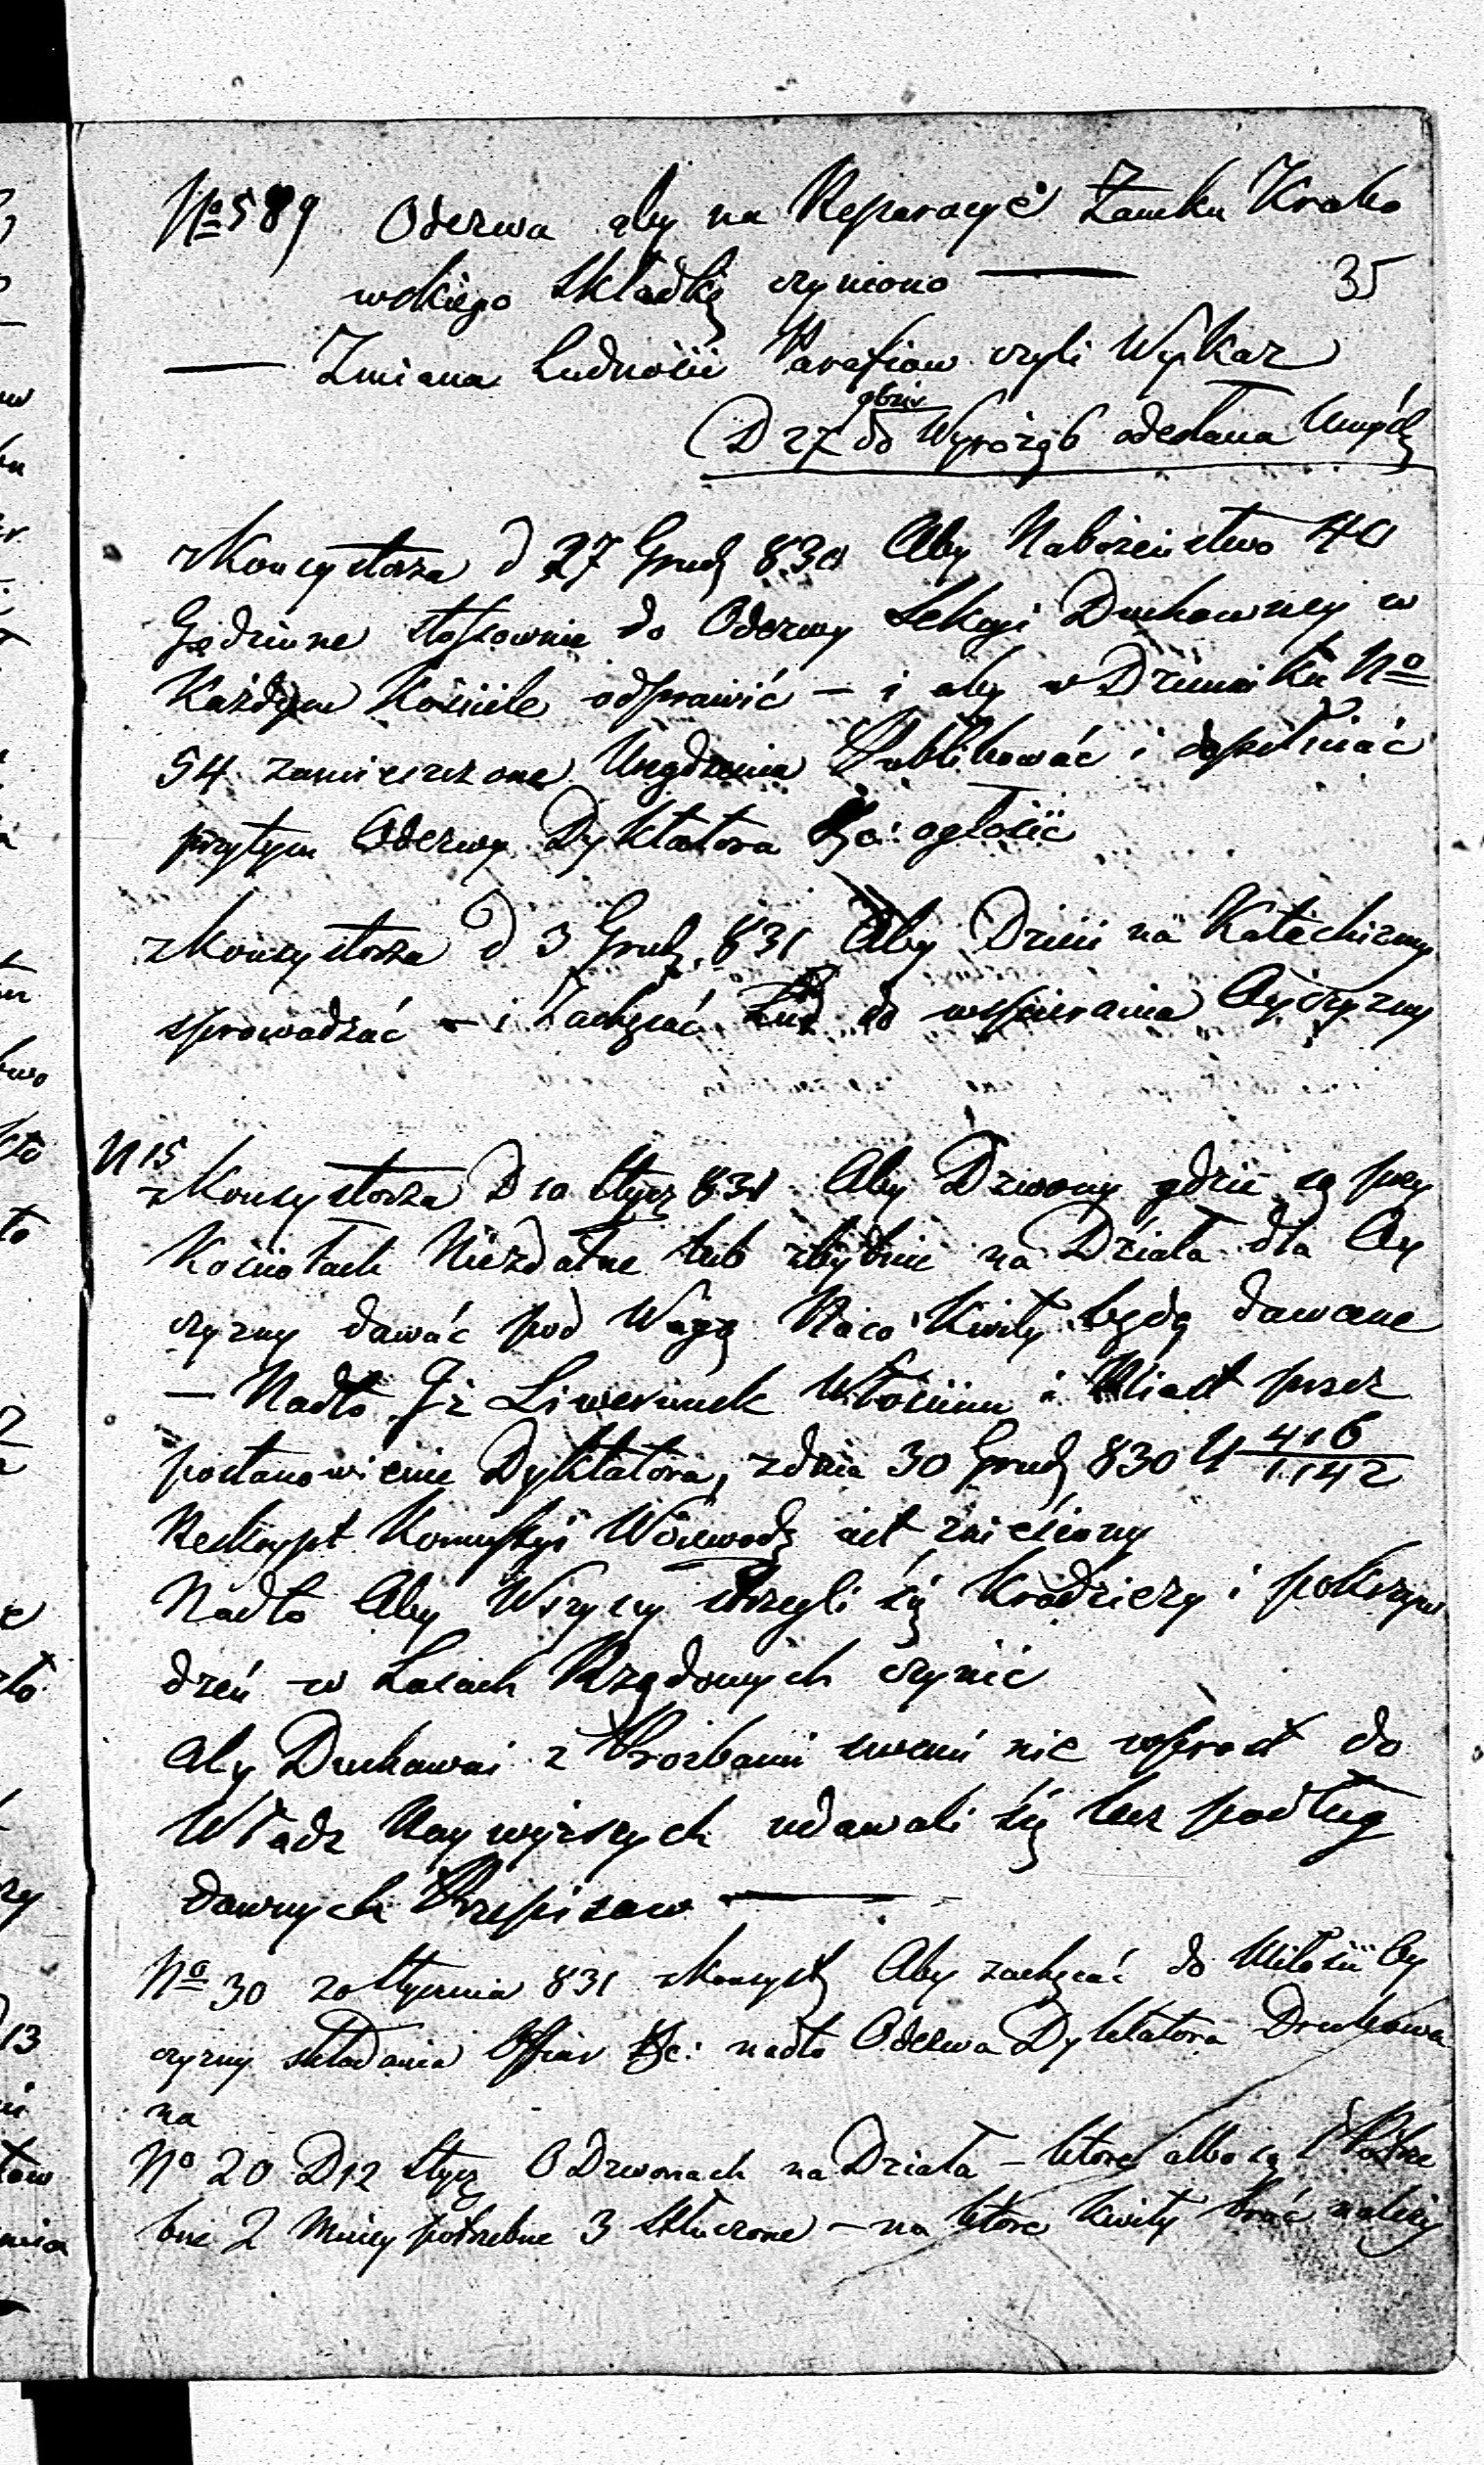 No 589 Odezwa aby na Reparacyě Zamku Krako
35
wskiego składkę czyniono —
— Zmiana Ludności Parafiow czyli Wykaz
(D 27 do Wyrozęb odesłana
z Konsystorza d 27 Grud 830 Aby Nabożeństwo 40
Godzinne stossownie do Odezwy Sekcyi Duchowney w
Każdym Kościele odprawić — i aby w Dzienniku No
54 zamieszczone Urządzenia Publikować i dopełniać
przytym Odezwy Dyktatora &c: ogłosić
z Konsystorza d 3 Grud. 831 Aby Dzieci na Katechizmy
sprowadzać — i Zachęcać Lud do wspierania Oyczyzny
N 15
z Konsystorza D 10 Stycz 831 Aby Dzwony gdzie są przy
Kościołach Niezdatne lub zbytnie na Działa dla Oy
czyzny dawać pod Wagą Naco Kwity będą dawane
— Nadto Iż Liwerunek Włościan i Miast przez
postanowienie Dyktatora, z dnia 30 Grud 830 N 416/1142
Reskrypt Komissyi Woiewodz iest zniesiony
Nadto Aby Wszyscy strzegli się kradzieży i pokrzyw
dzeń w Lasach Rządowych czynić
Aby Duchowni z Prozbami swemi nie wprost do
Władz Naywyższych udawali się lecz podług
dawnych Przepisow —
No 30 20 Stycznia 831 z Konsyst Aby zachęcać do Miłości Oy
czyzny składania Offiar &c: nadto Odezwa Dyktatora Drukowa
na
No 20 D 12 Stycz O Dzwonach na Działa — ktore albo są 1 Potrze
bne 2 Mniey potrzebne 3 Stłuczone — na ktore kwity brać należy